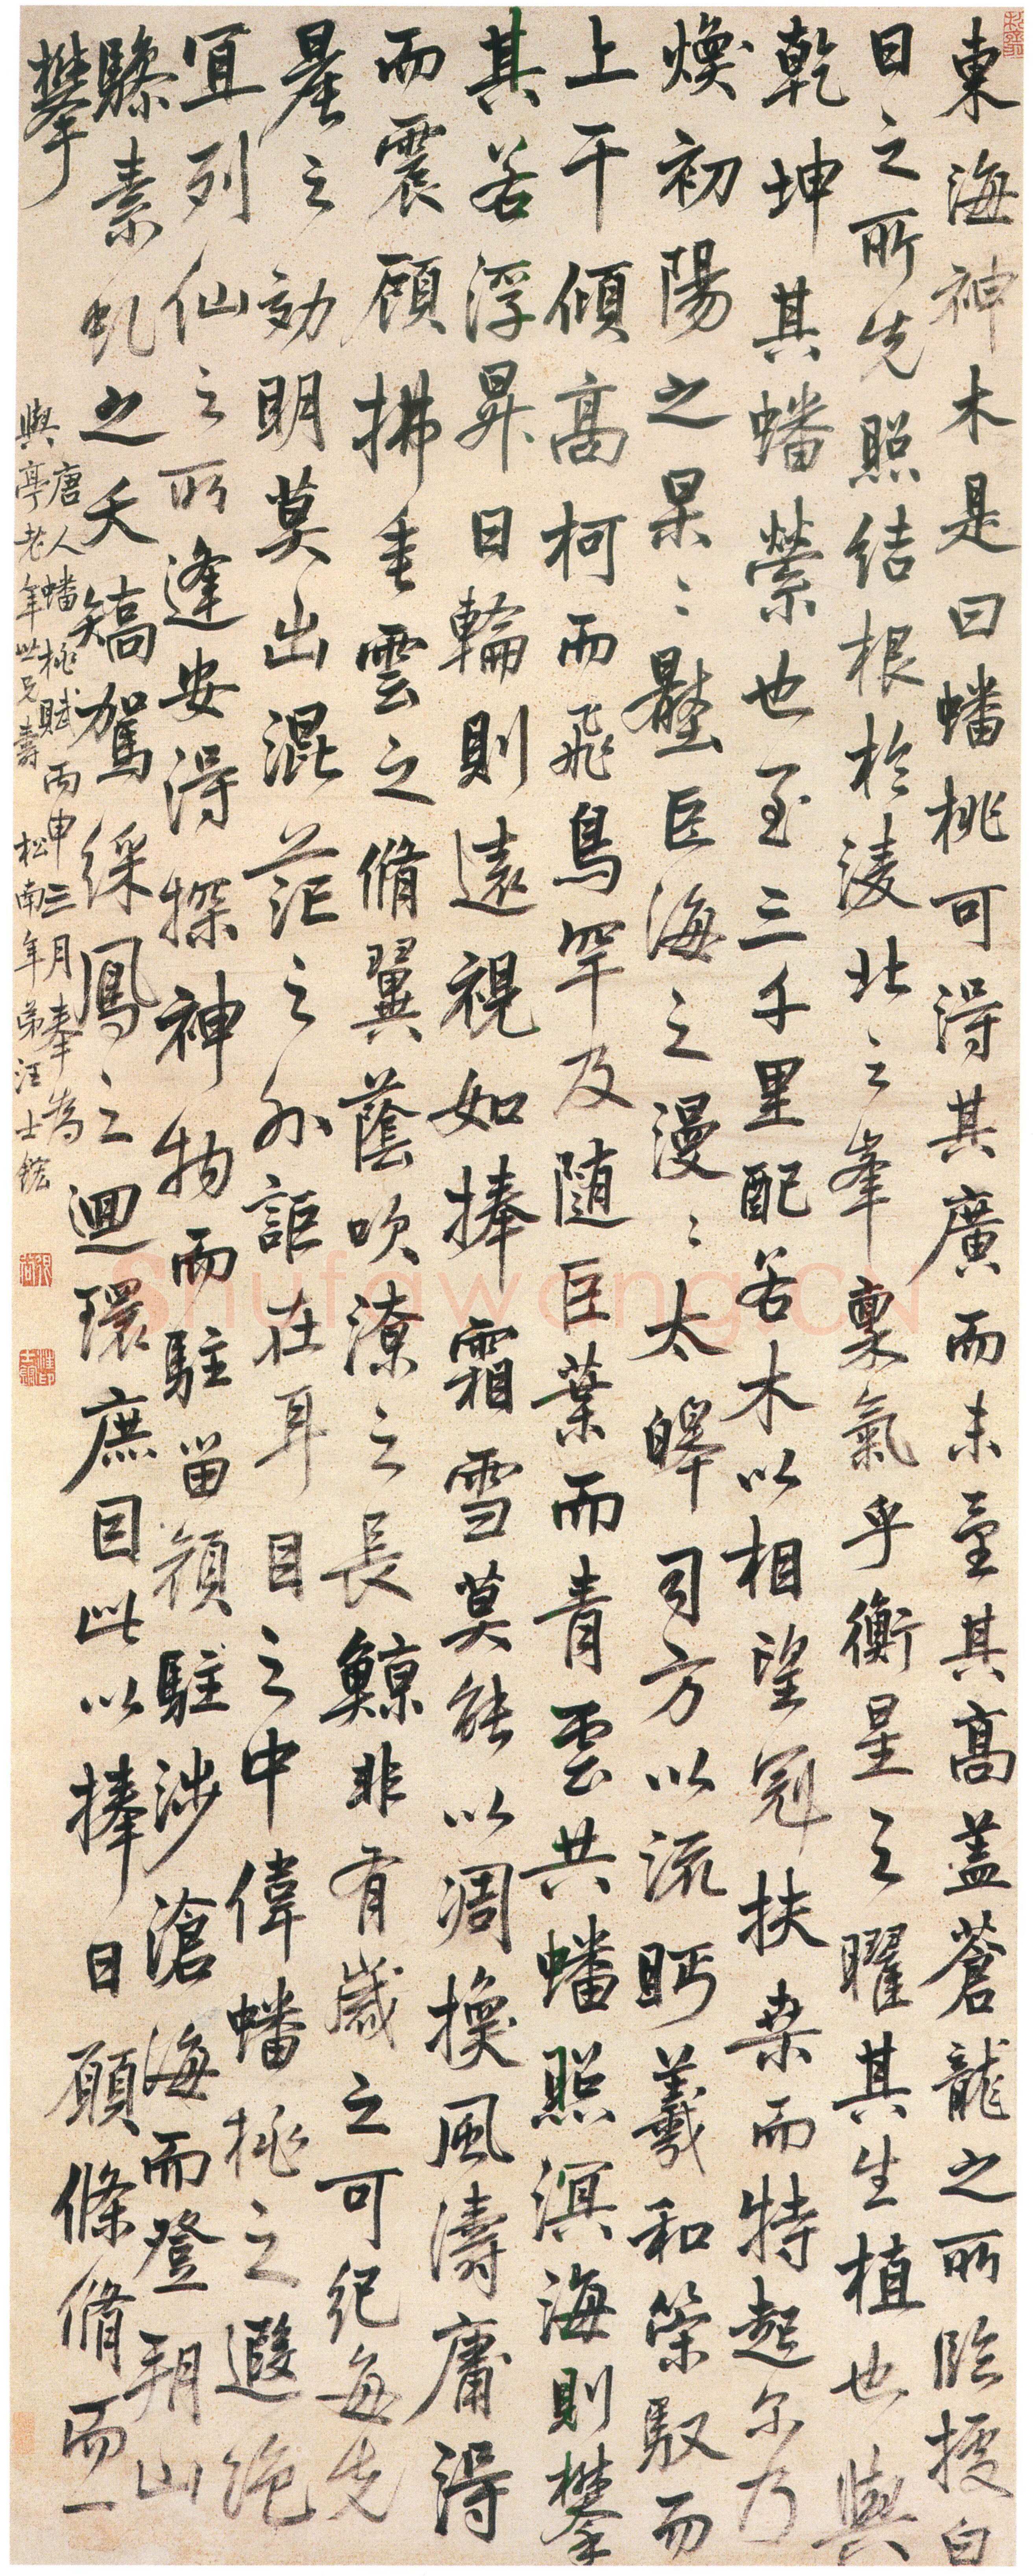 東海神木是曰蟠桃可得其廣而未量其高蓋蒼龍之所臨援白
日之所先照結根於淩北之峯稟氣乎衡星之曜其生植也與
乾坤其蟠縈也至三千里配若木以相望冠扶桑而特起尔乃
煥初陽之杲〻壓巨海之漫〻太皞司方以流眄羲和策馭而
上干傾高柯而飛鳥罕及隨巨葉而青雲共蟠照溟海則攀
其若浮昇日輪則遠視如捧霜雪莫能以凋換風濤庸得
而震顧拂垂雲之脩翼蔭吹潦之長鯨非有歲之可紀每先
晨之効明莫出混茫之外詎在耳目之中偉蟠桃之遐絶
宜列仙之所逢安得探神物而駐留顏駐涉滄海而登朔山
驂素虬之夭矯駕綵鳳之迴環庶因此以捧日願條脩而一
攀
唐人蟠桃賦丙申三月奉為
與亭老年世兄壽 松南年弟汪士鋐
Shufawang.CN